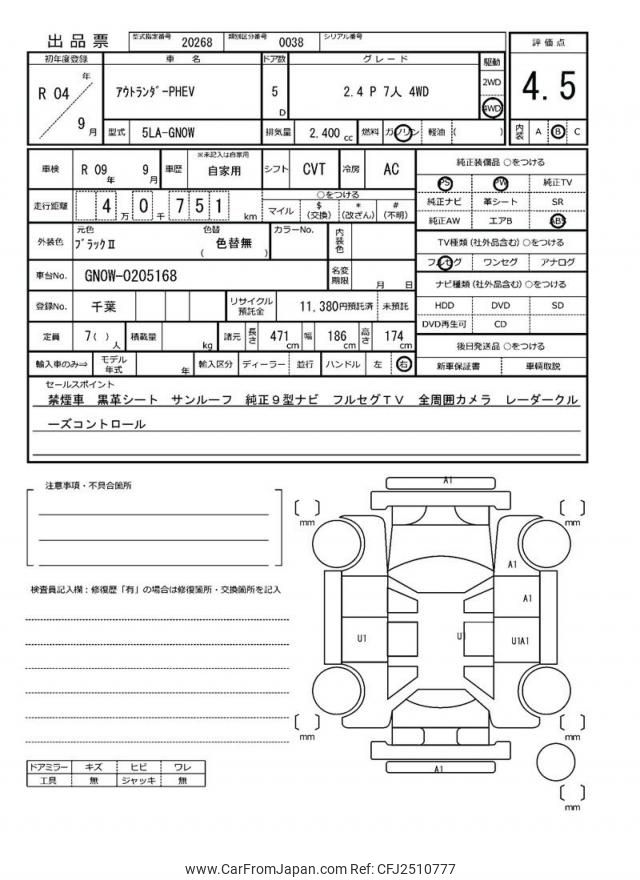 出品票
型式指定番号 20268 類別区分番号 0038 シリアル番号
評価点
4.5
初年度登録 車名 ドア数 グレード 駆動
R 04 年 9 月
ｱｳﾄﾗﾝﾀﾞｰPHEV 5 D 2.4 P 7人 4WD
2WD
4WD
型式 5LA-GN0W 排気量 2.400 cc 燃料 ガソリン 軽油 ( )
内装 A B C
車検 R 09 年 9 月 車歴 ※未記入は自家用 自家用 シフト CVT 冷房 AC
走行距離 4 万 0 千 7 5 1 km
○をつける
マイル $ (交換) * (改ざん) # (不明)
外装色 元色 ﾌﾞﾗｯｸⅡ 色替 ( 色替無 ) カラーNo. 内装色
車台No. GN0W-0205168 名変期限 月 日
登録No. 千葉 リサイクル預託金 11,380円預託済 未預託
定員 7( ) 人 積載量 kg 諸元 長さ 471 cm 幅 186 cm 高さ 174 cm
輸入車のみ⇒ モデル年式 年 輸入区分 ディーラー 並行 ハンドル 左 右
純正装備品 ○をつける
PS PW 純正TV
純正ナビ 革シート SR
純正AW エアB ABS
TV種類 (社外品含む) ○をつける
フルセグ ワンセグ アナログ
ナビ種類 (社外品含む) ○をつける
HDD DVD SD
DVD再生可 CD
後日発送品 ○をつける
新車保証書 車輌取説
セールスポイント
禁煙車 黒革シート サンルーフ 純正９型ナビ フルセグＴＶ 全周囲カメラ レーダークル
ーズコントロール
注意事項・不具合箇所
検査員記入欄：修復歴「有」の場合は修復箇所・交換箇所を記入
A1
mm
mm
A1
A1
U1
U1
U1A1
mm
mm
A1
mm
ドアミラー キズ ヒビ ワレ
工具 無 ジャッキ 無
www.CarFromJapan.com Ref: CFJ2510777